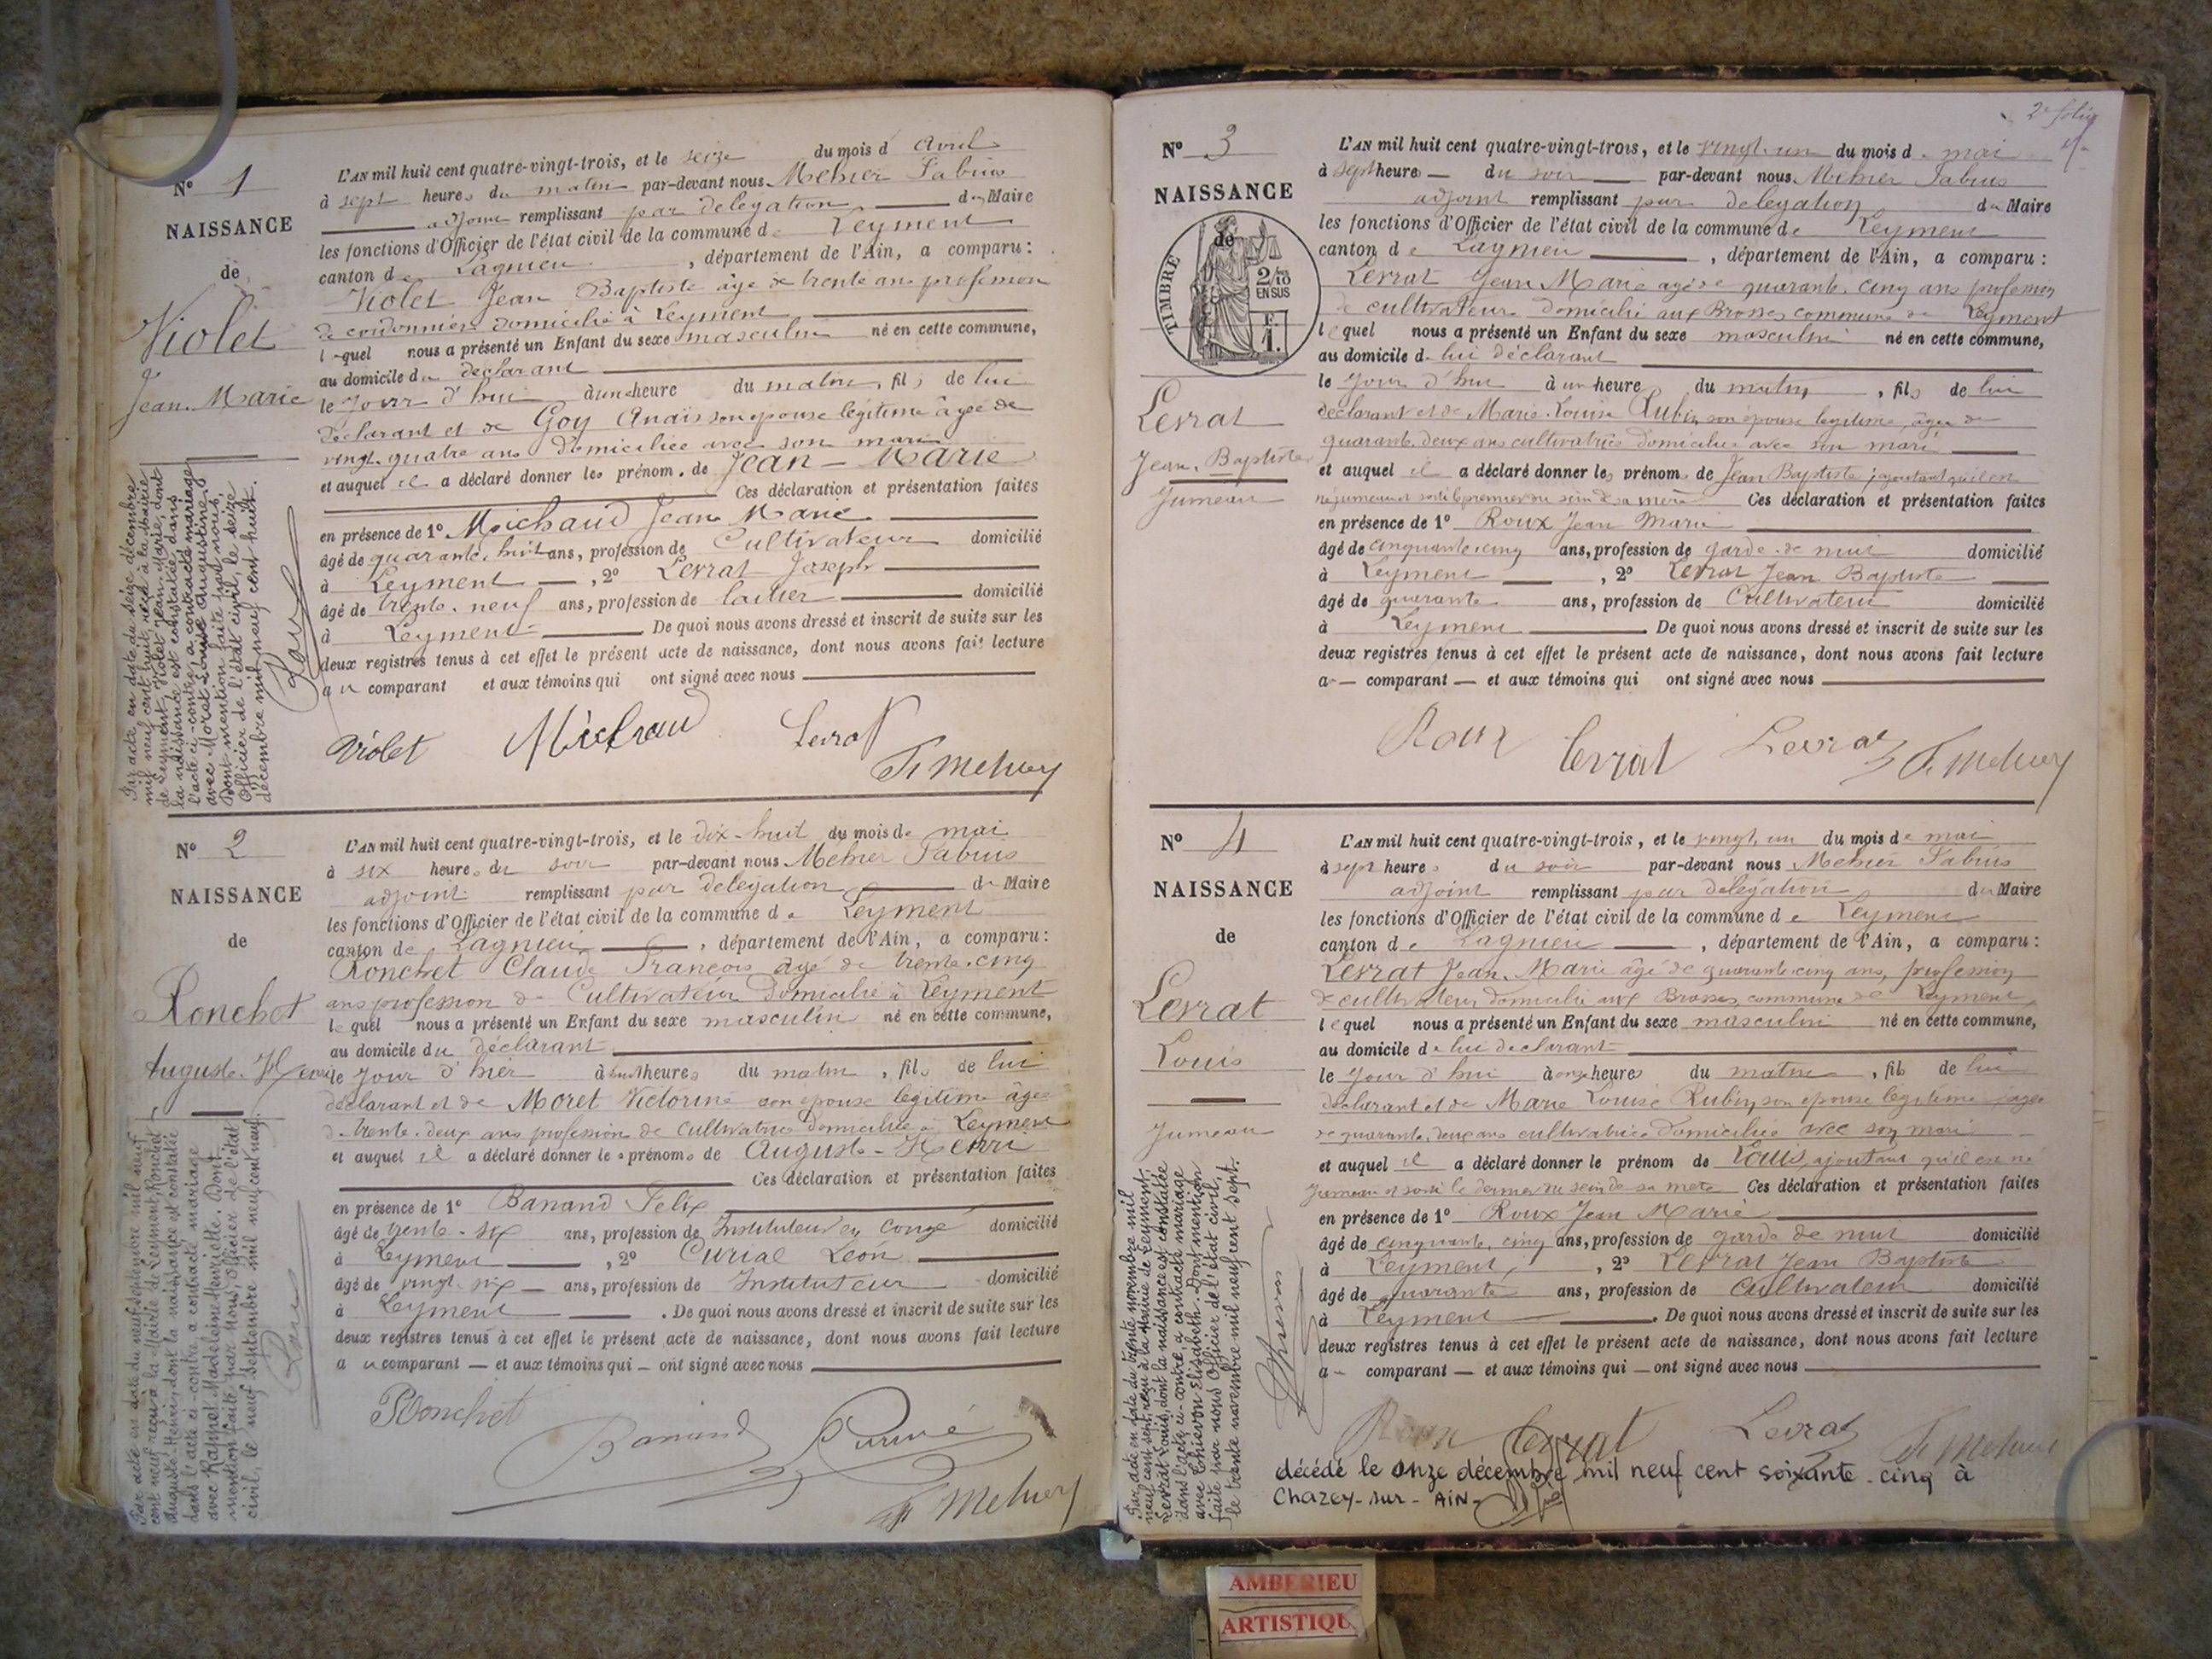 N° 1
NAISSANCE
de
Violet
Jean-Marie
L'AN mil huit cent quatre-vingt-trois, et le seize du mois d' Avril
à sept heures du matin par-devant nous Mehier Fabius
adjoint remplissant par délégation du Maire
les fonctions d'Officier de l'état civil de la commune de Leyment
canton de Lagnieu, département de l'Ain, a comparu :
Violet Jean Baptiste âgé de trente ans profession
de cordonnier domicilié à Leyment
lequel nous a présenté un Enfant du sexe masculin né en cette commune,
au domicile du déclarant
le jour d'hui à une heure du matin, fils de lui
déclarant et de Goy Anaïs son épouse légitime âgée de
vingt-quatre ans domiciliée avec son mari
et auquel il a déclaré donner les prénom de Jean-Marie
Ces déclaration et présentation faites
en présence de 1° Michaud Jean Marie
âgé de quarante-huit ans, profession de Cultivateur domicilié
à Leyment, 2° Levrat Joseph
âgé de trente-neuf ans, profession de laitier domicilié
à Leyment De quoi nous avons dressé et inscrit de suite sur les
deux registres tenus à cet effet le présent acte de naissance, dont nous avons fait lecture
au comparant et aux témoins qui ont signé avec nous
Violet Michaud Levrat
F. Mehier
Par acte en date du seize décembre
mil neuf cent huit, reçu à la Mairie
de Leyment, Violet Jean-Marie, dont
la naissance est constatée dans
l'acte ci-contre, a contracté mariage
avec Moret Louise Augustine.
Dont mention faite par nous,
Officier de l'état civil, le seize
décembre mil neuf cent huit.
N° 2
NAISSANCE
de
Ronchet
Auguste-Henri
L'AN mil huit cent quatre-vingt-trois, et le dix-huit du mois de mai
à six heures du soir par-devant nous Mehier Fabius
adjoint remplissant par délégation du Maire
les fonctions d'Officier de l'état civil de la commune de Leyment
canton de Lagnieu, département de l'Ain, a comparu :
Ronchet Claude François âgé de trente-cinq
ans profession de Cultivateur domicilié à Leyment
lequel nous a présenté un Enfant du sexe masculin né en cette commune,
au domicile du déclarant
le jour d'hier à huit heures du matin, fils de lui
déclarant et de Moret Victorine son épouse légitime âgée
de trente-deux ans profession de Cultivatrice domiciliée à Leyment
et auquel il a déclaré donner les prénoms de Auguste-Henri
Ces déclaration et présentation faites
en présence de 1° Banand Felix
âgé de trente-six ans, profession de Instituteur en congé domicilié
à Leyment, 2° Curial Léon
âgé de vingt-six ans, profession de Instituteur domicilié
à Leyment. De quoi nous avons dressé et inscrit de suite sur les
deux registres tenus à cet effet le présent acte de naissance, dont nous avons fait lecture
au comparant et aux témoins qui ont signé avec nous
Ronchet Banand
F. Mehier
Par acte en date du neuf septembre mil neuf
cent neuf reçu à la Mairie de Leyment, Ronchet
Auguste Henri, dont la naissance est constatée
dans l'acte ci-contre a contracté mariage
avec Rappet Madeleine Henriette. Dont
mention faite par Nous, Officier de l'état
civil, le neuf septembre mil neuf cent neuf.
2e folio
N° 3
NAISSANCE
de
TIMBRE
2/10
EN SUS
F.
1.
Levrat
Jean-Baptiste
Jumeau
L'AN mil huit cent quatre-vingt-trois, et le vingt-un du mois de mai
à sept heures du soir par-devant nous Mehier Fabius
adjoint remplissant par délégation du Maire
les fonctions d'Officier de l'état civil de la commune de Leyment
canton de Lagnieu, département de l'Ain, a comparu :
Levrat Jean Marie âgé de quarante-cinq ans profession
de cultivateur domicilié aux Brosses commune de Leyment
lequel nous a présenté un Enfant du sexe masculin né en cette commune,
au domicile de lui déclarant
le jour d'hui à un heure du matin, fils de lui
déclarant et de Marie-Louise Rubin, son épouse légitime, âgée de
quarante-deux ans cultivatrice domiciliée avec son mari
et auquel il a déclaré donner les prénoms de Jean Baptiste ajoutant qu'il est
né jumeau et sorti le premier du sein de sa mère Ces déclaration et présentation faites
en présence de 1° Roux Jean Marie
âgé de cinquante-cinq ans, profession de garde de nuit domicilié
à Leyment, 2° Levrat Jean Baptiste
âgé de quarante ans, profession de Cultivateur domicilié
à Leyment. De quoi nous avons dressé et inscrit de suite sur les
deux registres tenus à cet effet le présent acte de naissance, dont nous avons fait lecture
a comparant et aux témoins qui ont signé avec nous
Roux Levrat Levrat F. Mehier
N° 4
NAISSANCE
de
Levrat
Louis
Jumeau
L'AN mil huit cent quatre-vingt-trois, et le vingt-un du mois de mai
à sept heures du soir par-devant nous Mehier Fabius
adjoint remplissant par délégation du Maire
les fonctions d'Officier de l'état civil de la commune de Leyment
canton de Lagnieu, département de l'Ain, a comparu :
Levrat Jean-Marie âgé de quarante-cinq ans, profession
de cultivateur domicilié aux Brosses, commune de Leyment
lequel nous a présenté un Enfant du sexe masculin né en cette commune,
au domicile de lui déclarant
le jour d'hui à onze heures du matin, fils de lui
déclarant et de Marie Louise Rubin, son épouse légitime, âgée
de quarante-deux ans cultivatrice domiciliée avec son mari
et auquel il a déclaré donner le prénom de Louis, ajoutant qu'il est né
jumeau et sorti le dernier du sein de sa mère Ces déclaration et présentation faites
en présence de 1° Roux Jean Marie
âgé de cinquante-cinq ans, profession de garde de nuit domicilié
à Leyment, 2° Levrat Jean Baptiste
âgé de quarante ans, profession de Cultivateur domicilié
à Leyment. De quoi nous avons dressé et inscrit de suite sur les
deux registres tenus à cet effet le présent acte de naissance, dont nous avons fait lecture
a comparant et aux témoins qui ont signé avec nous
Roux Levrat Levrat F. Mehier
décédé le onze décembre mil neuf cent soixante-cinq à
Chazey-sur-Ain-
Par acte en date du trente novembre mil
neuf cent sept, reçu à la Mairie de Leyment,
Levrat Louis, dont la naissance est constatée
dans l'acte ci-contre, a contracté mariage
avec Chievron Elisabeth. Dont mention
faite par nous Officier de l'état civil,
le trente novembre mil neuf cent sept.
AMBERIEU
ARTISTIQUE